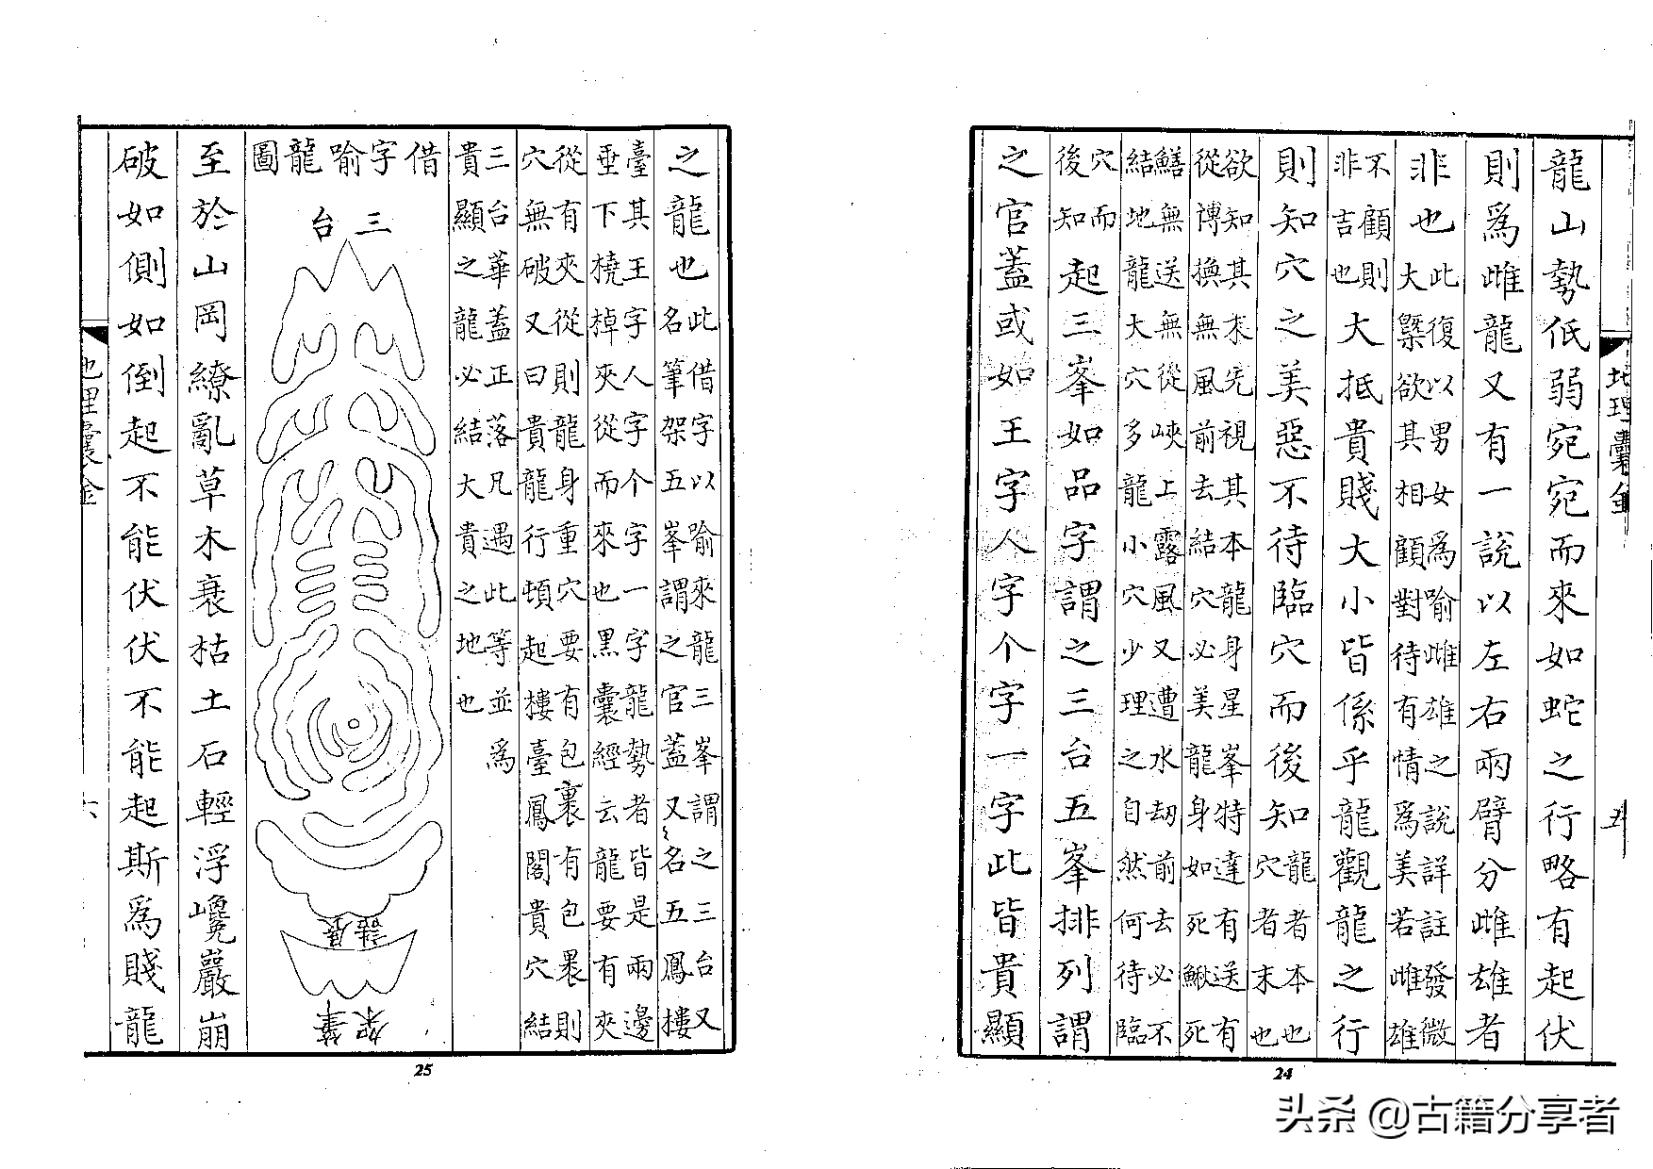 地理囊金
五
龍山勢低弱宛宛而來如蛇之行略有起伏
則爲雌龍又有一說以左右兩臂分雌雄者
非也
此復以男女爲喻雌雄之說詳註發微
大槩欲其相顧對待有情爲美若雌雄
不顧則
非吉也
大抵貴賤大小皆係乎龍觀龍之行
則知穴之美惡不待臨穴而後知
龍者本也
穴者末也
欲知其來先視其本龍身星峯特達有送有
從博換無風前去結穴必美龍身如死鰍死
鱔無送無從峽上露風又遭水刼前去必不
結地龍大穴多龍小穴少理之自然何待臨
穴而
後知
起三峯如品字謂之三台五峯排列謂
之官蓋或如王字人字个字一字此皆貴顯
24
之龍也
此借字以喻來龍三峯謂之三台又
名筆架五峯謂之官蓋又名五鳳樓
臺其王字人字个字一字龍勢者皆是兩邊
垂下橈棹夾從而來也黑囊經云龍要有夾
從有夾從則龍身重穴要有包裹有包裹則
穴無破又曰貴龍行頓起樓臺鳳閣貴穴結
三台華蓋正落凡遇此等並爲
貴顯之龍必結大貴之地也
借字喻龍圖
三台
展誥
筆架
至於山岡繚亂草木衰枯土石輕浮巉巖崩
破如側如倒起不能伏伏不能起斯爲賤龍
地理囊金
六
25
头条 @古籍分享者